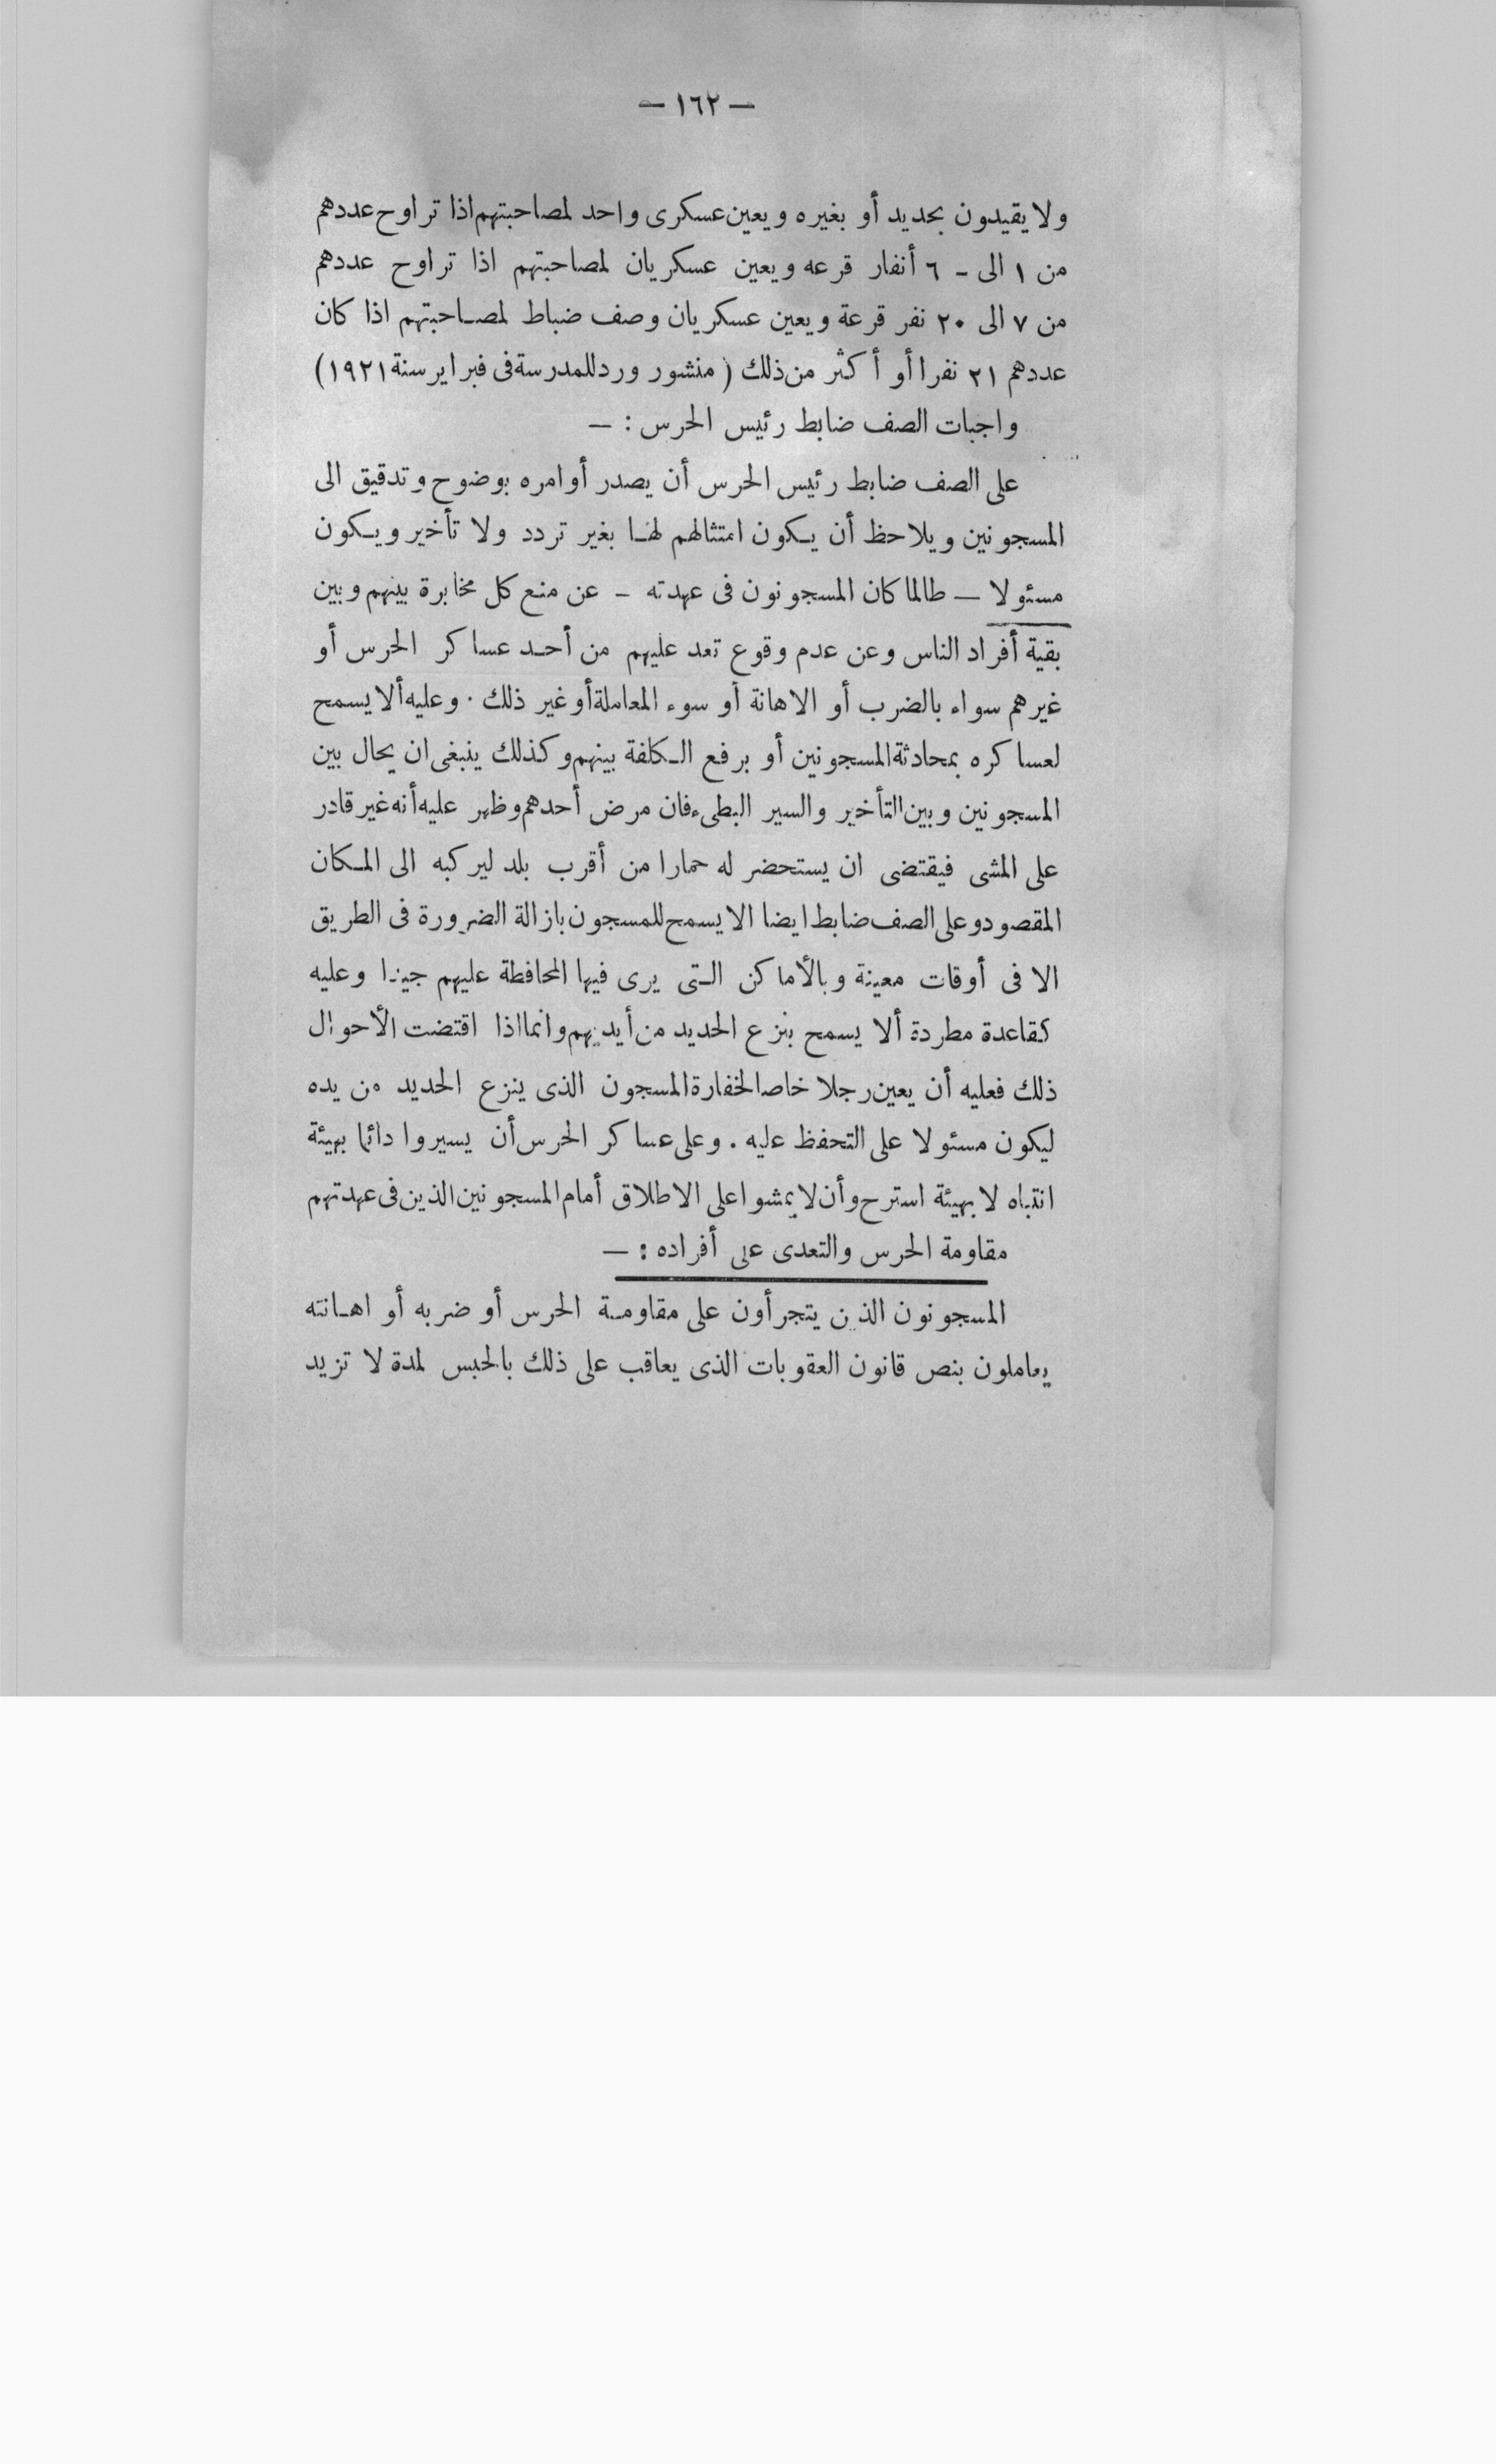 — ١٦٢ —
ولا يقيدون بحديد أو بغيره ويعين عسكرى واحد لمصاحبتهم اذا تراوح عددهم
من ١ الى - ٦ أنفار قرعه ويعين عسكريان لمصاحبتهم اذا تراوح عددهم
من ٧ الى ٢٠ نفر قرعة ويعين عسكريان وصف ضباط لمصاحبتهم اذا كان
عددهم ٢١ نفرا أو أكثر من ذلك ( منشور ورد للمدرسة فى فبراير سنة ١٩٢١ )
واجبات الصف ضابط رئيس الحرس : —
على الصف ضابط رئيس الحرس أن يصدر أوامره بوضوح وتدقيق الى
المسجونين ويلاحظ أن يكون امتثالهم لها بغير تردد ولا تأخير ويكون
مسئولا — طالما كان المسجونون فى عهدته - عن منع كل مخابرة بينهم وبين
بقية أفراد الناس وعن عدم وقوع تعد عليهم من أحد عساكر الحرس أو
غيرهم سواء بالضرب أو الاهانة أو سوء المعاملة أو غير ذلك . وعليه ألا يسمح
لعساكره بمحادثة المسجونين أو برفع الكلفة بينهم وكذلك ينبغى ان يحال بين
المسجونين وبين التأخير والسير البطىء فان مرض أحدهم وظهر عليه أنه غير قادر
على المشى فيقتضى ان يستحضر له حمارا من أقرب بلد ليركبه الى المكان
المقصود وعلى الصف ضابط ايضا الا يسمح للمسجون بازالة الضرورة فى الطريق
الا فى أوقات معينة وبالأماكن التى يرى فيها المحافظة عليهم جيدا وعليه
كقاعدة مطردة ألا يسمح بنزع الحديد من أيديهم وانما اذا اقتضت الأحوال
ذلك فعليه أن يعين رجلا خاصا لخفارة المسجون الذى ينزع الحديد من يده
ليكون مسئولا على التحفظ عليه . وعلى عساكر الحرس أن يسيروا دائما بهيئة
انتباه لا بهيئة استرح وأن لا يمشوا على الاطلاق أمام المسجونين الذين فى عهدتهم
مقاومة الحرس والتعدى على أفراده : —
المسجونون الذين يتجرأون على مقاومة الحرس أو ضربه أو اهانته
يعاملون بنص قانون العقوبات الذى يعاقب على ذلك بالحبس لمدة لا تزيد